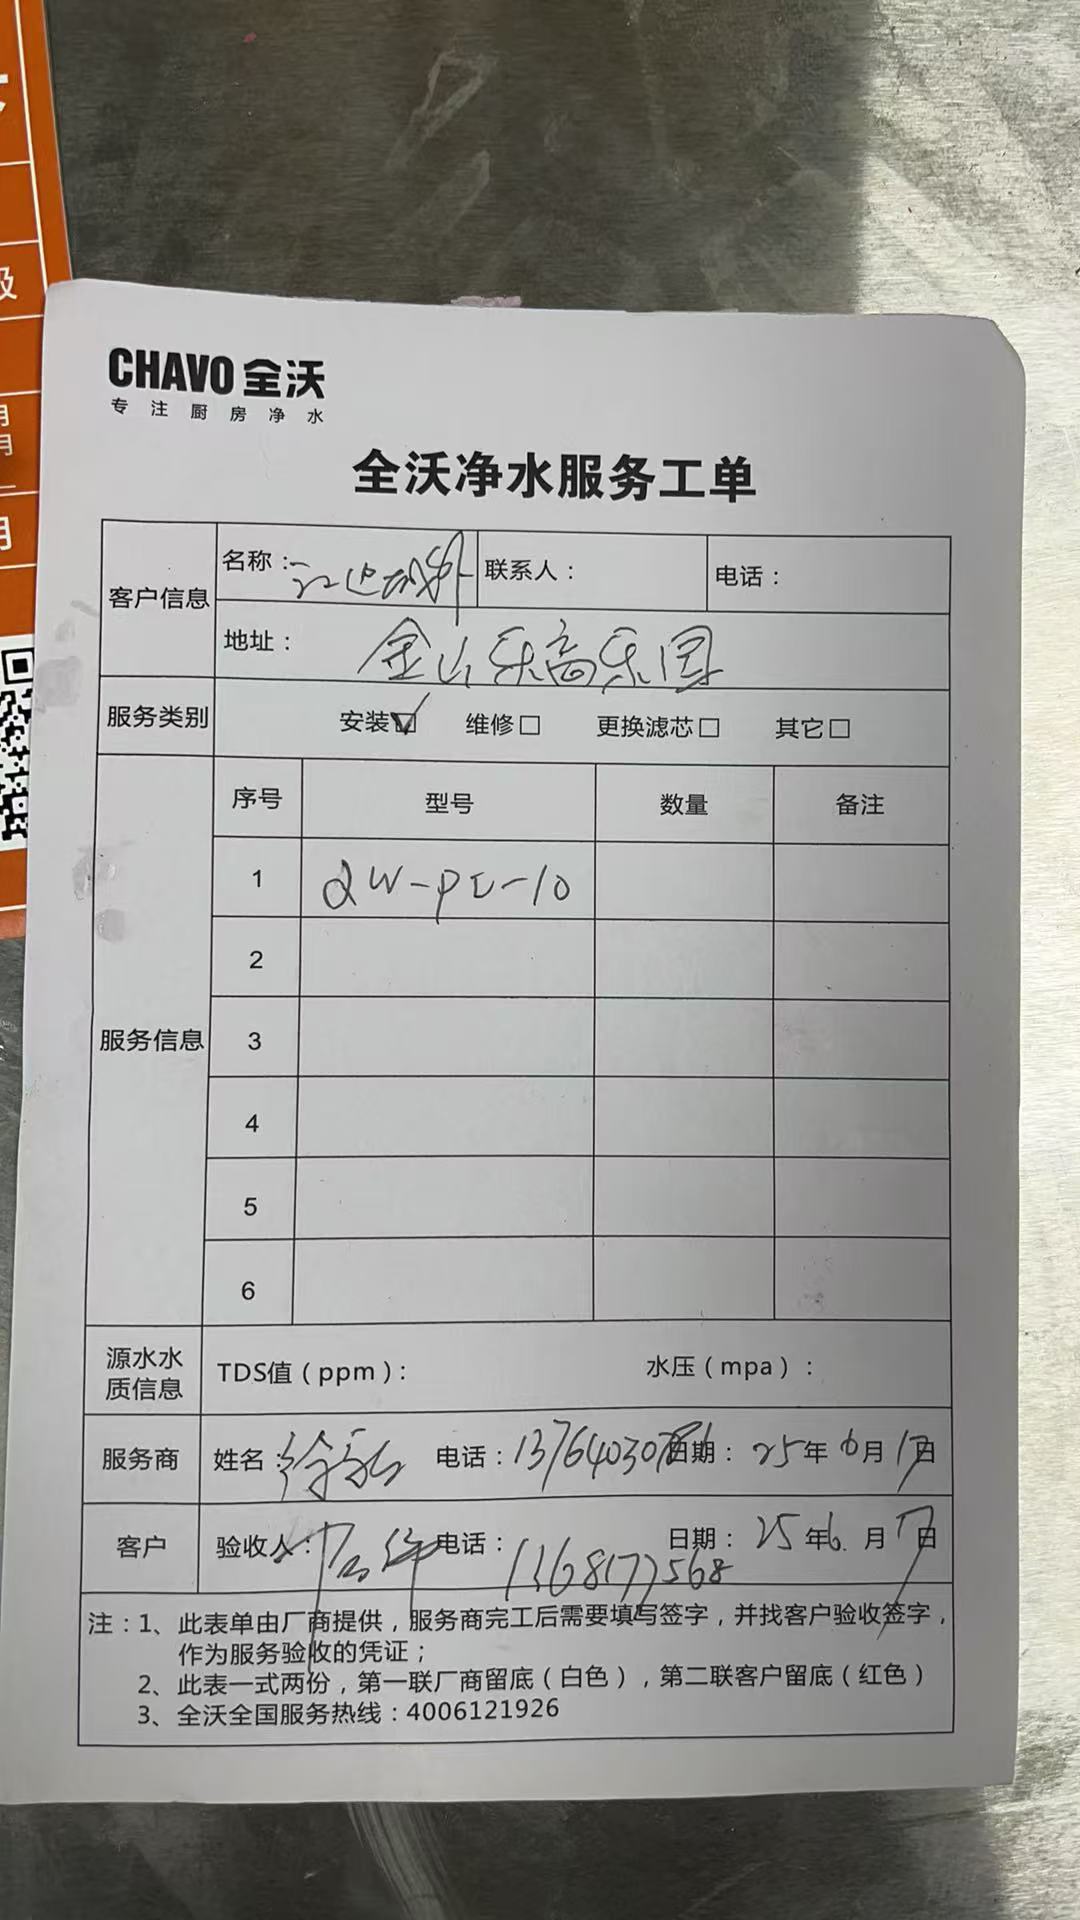 级
月
月
月
CHAVO 全沃
专注厨房净水
全沃净水服务工单
客户信息 名称： 江边城外 联系人： 电话：
地址： 金山乐高乐园
服务类别 安装☑ 维修□ 更换滤芯□ 其它□
服务信息 序号 型号 数量 备注
1 QW-PE-10
2
3
4
5
6
源水水质信息 TDS值（ppm）： 水压（mpa）：
服务商 姓名： 徐 电话： 137640307 日期： 25年6月17日
客户 验收人： 电话： 13681772568 日期： 25年6月17日
注：1、此表单由厂商提供，服务商完工后需要填写签字，并找客户验收签字，
作为服务验收的凭证；
2、此表一式两份，第一联厂商留底（白色），第二联客户留底（红色）
3、全沃全国服务热线：4006121926